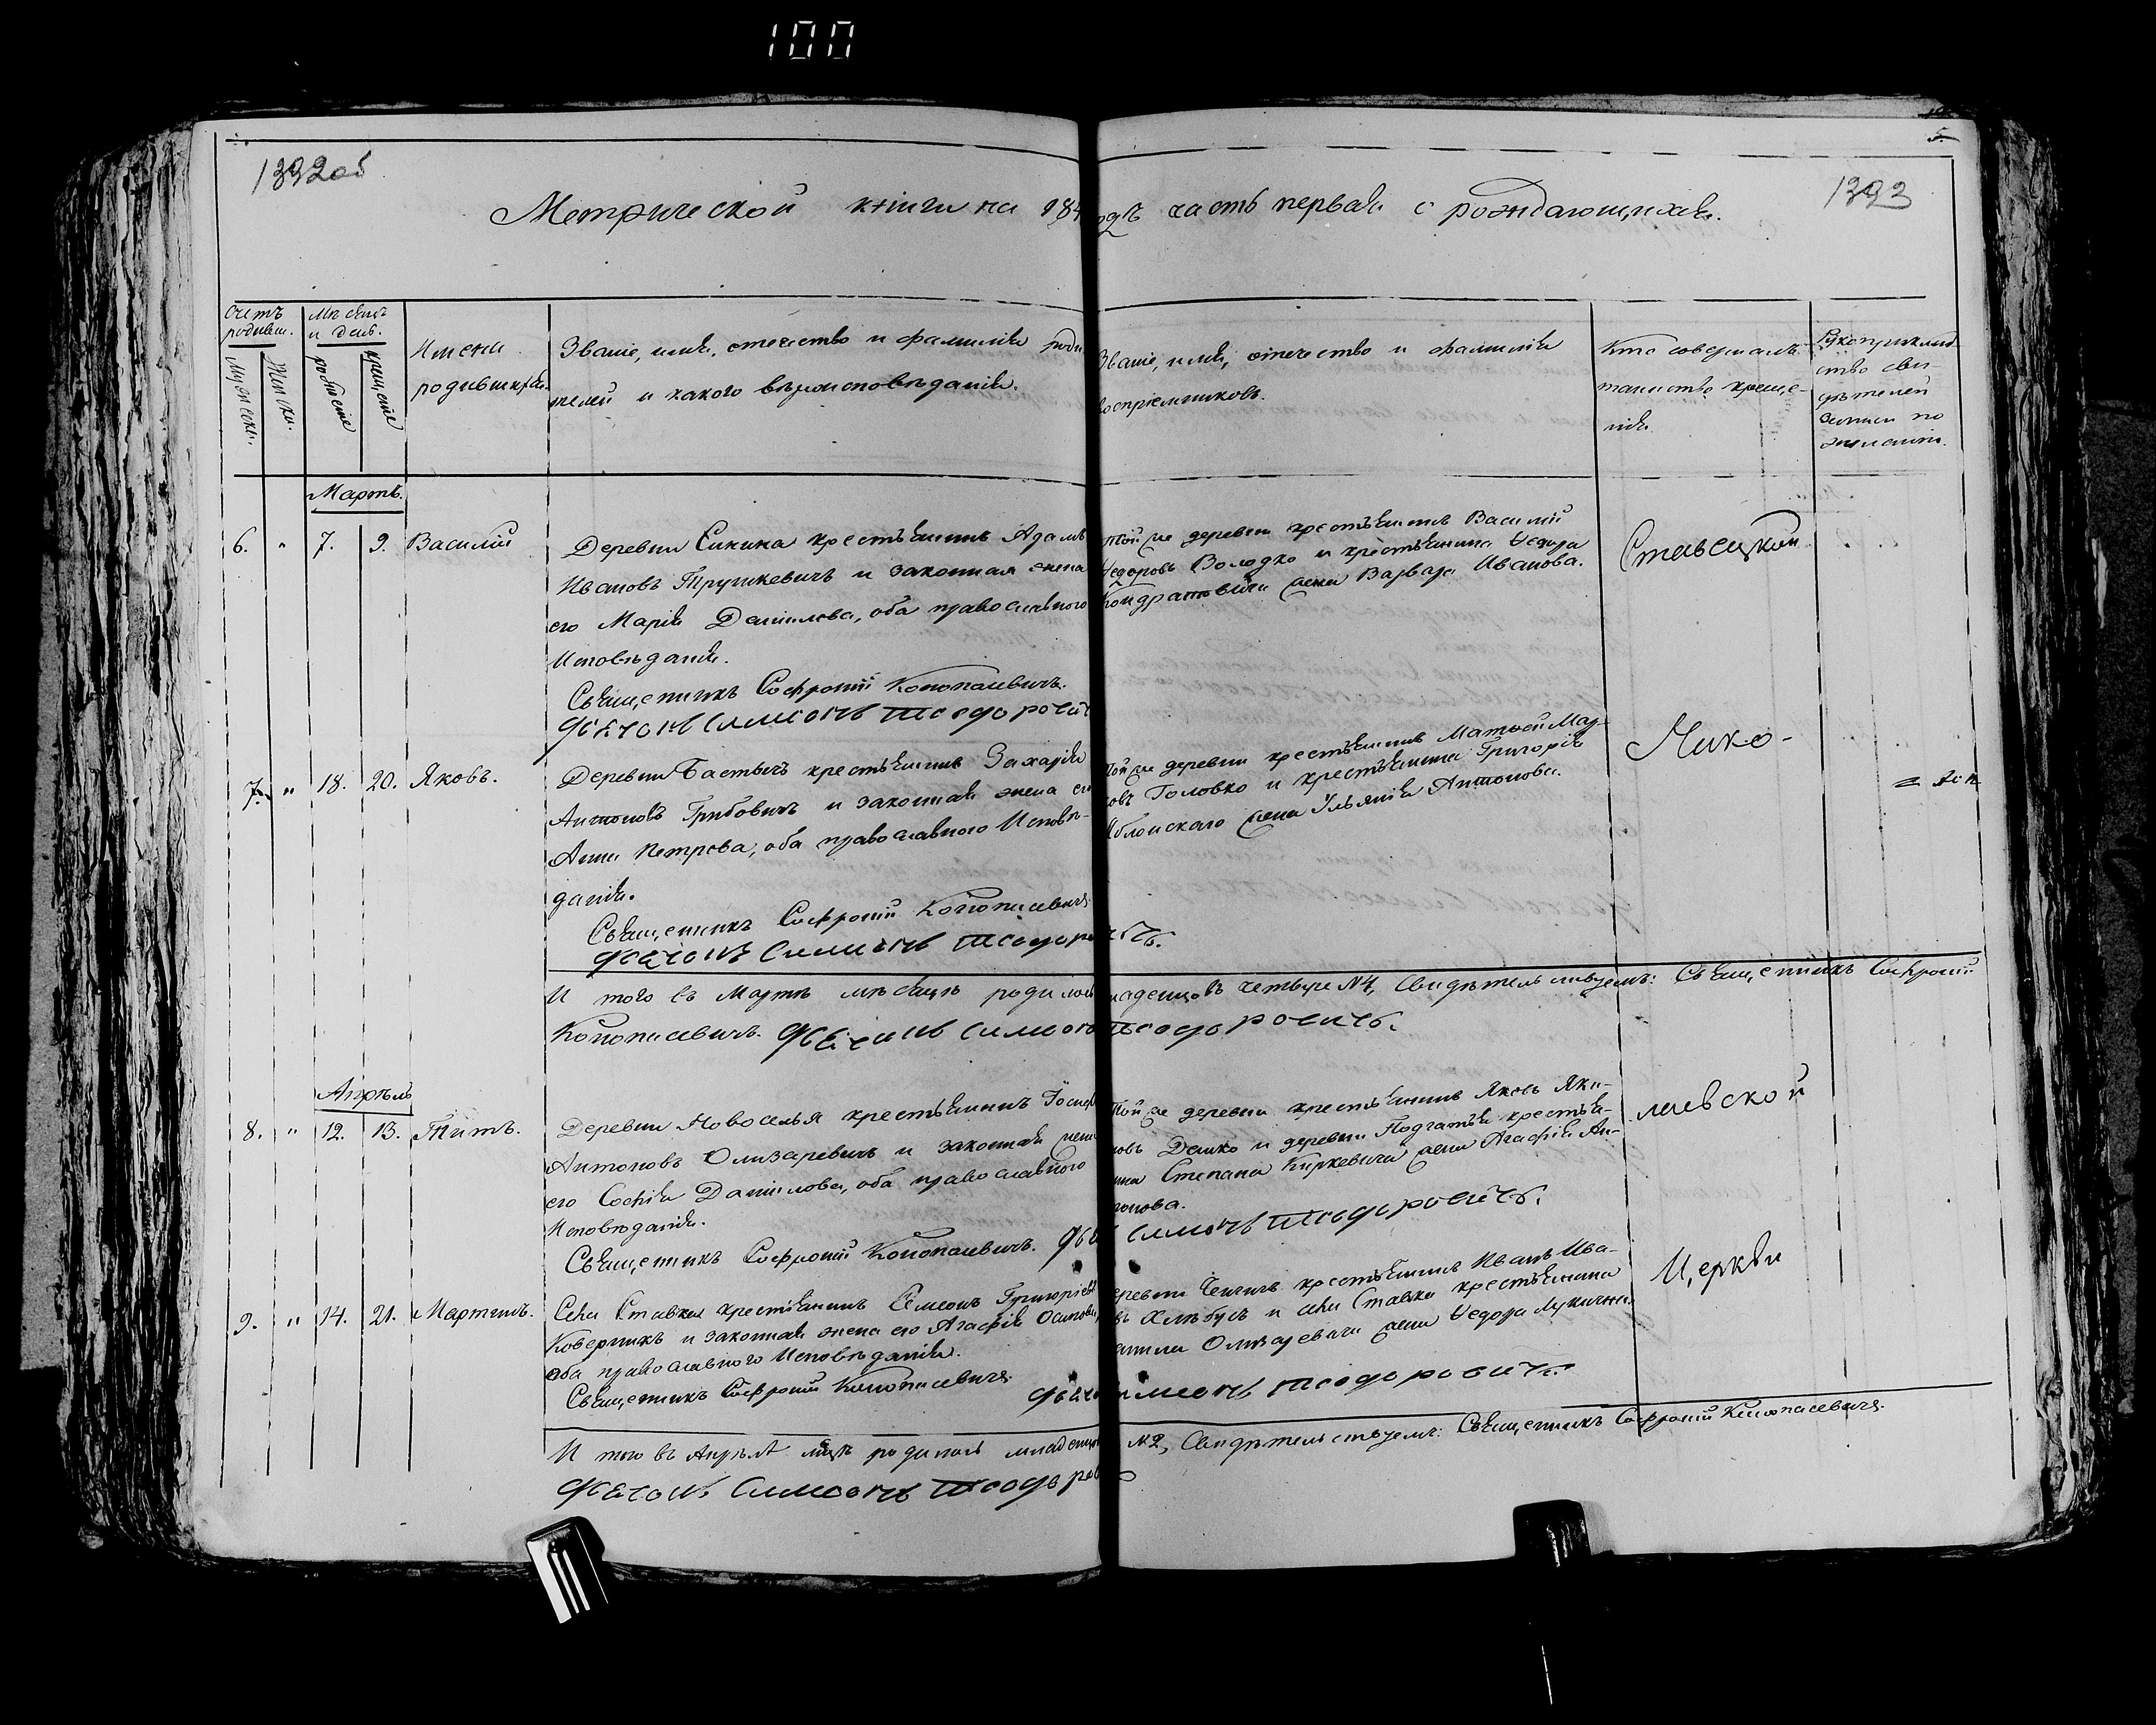 100
1392об
1393
5.
Метрической книги на 184 одъ часть первая о рождающихся.
Счетъ родивш.
Мужеска.
Женска.
Мѣсяцъ и день.
рожденіе
крещеніе
Имена
родившихся.
Званіе, имя, отечество и фамилія роди
телей и какого вѣроисповѣданія.
Званіе, имя, отечество и фамилія
воспріемниковъ.
Кто совершалъ
таинство креще-
нія.
Рукоприклад
ство сви-
дѣтелей
записи по
желанію.
Мартъ.
6. " 7. 9. Василій
Деревни Сикина крестьянинъ Адамъ
Ивановъ Трушкевичъ и законная жена
его Марія Данилова, оба православного
Исповѣданія.
Священникъ Софроній Конопасевичъ.
Дьячокъ Симеонъ Теодорович
Той же деревни крестьянинъ Василій
Ѳедоровъ Володко и крестьянина Ѳедора
Кондратовича жена Варвара Иванова.
Ставецкой
7. " 18. 20. Яковъ.
Деревни Бастычъ крестьянинъ Захарія
Антоновъ Грибовичъ и законная жена его
Анна Петрова, оба православного Исповѣ-
данія.
Священникъ Софроній Конопасевичъ
Дьячокъ Симеонъ Теодоровичъ.
Той же деревни крестьянинъ Матѳей Мар-
ковъ Головко и крестьянина Григорія
Яблонскаго жена Ульянія Антонова.
Нико-
И того въ Мартѣ мѣсяцѣ родилось младенцовъ четыре №4, Свидѣтельствуемъ: Священникъ Софроній
Конопасевичъ. Дьячокъ Симеонъ Теодоровичъ.
Апрѣль
8. " 12. 13. Титъ.
Деревни Новоселья крестьянинъ Іосифъ
Антоновъ Олизаревичъ и законная жена
его Софія Данилова, оба православного
Исповѣданія.
Священникъ Софроній Конопасевичъ. Дья Симеонъ Теодоровичъ.
Той же деревни крестьянинъ Яковъ Яки-
мовъ Демко и деревни Подгатья крестья-
нина Степана Киркевича жена Агафія Ан-
тонова.
лаевской
9. " 14. 21. Мартинъ.
Села Ставки крестьянинъ Семенъ Григоріевъ
Коверникъ и законная жена его Агафія Осипова,
оба православного Исповѣданія.
Священникъ Софроній Конопасевичъ
Дьячо имеонъ Теодоровичъ.
еревни крестьянинъ Иванъ Ива-
въ Хлѣбусъ и села Ставки крестьянина
анила Олизаревича жена Ѳедора Лукична.
Церкви
И того въ Апрѣлѣ мцѣ родилось младенцо №2, Свидѣтельствуемъ: Священникъ Софроній Конопасевичъ.
Дьячокъ Симеонъ Теодоров